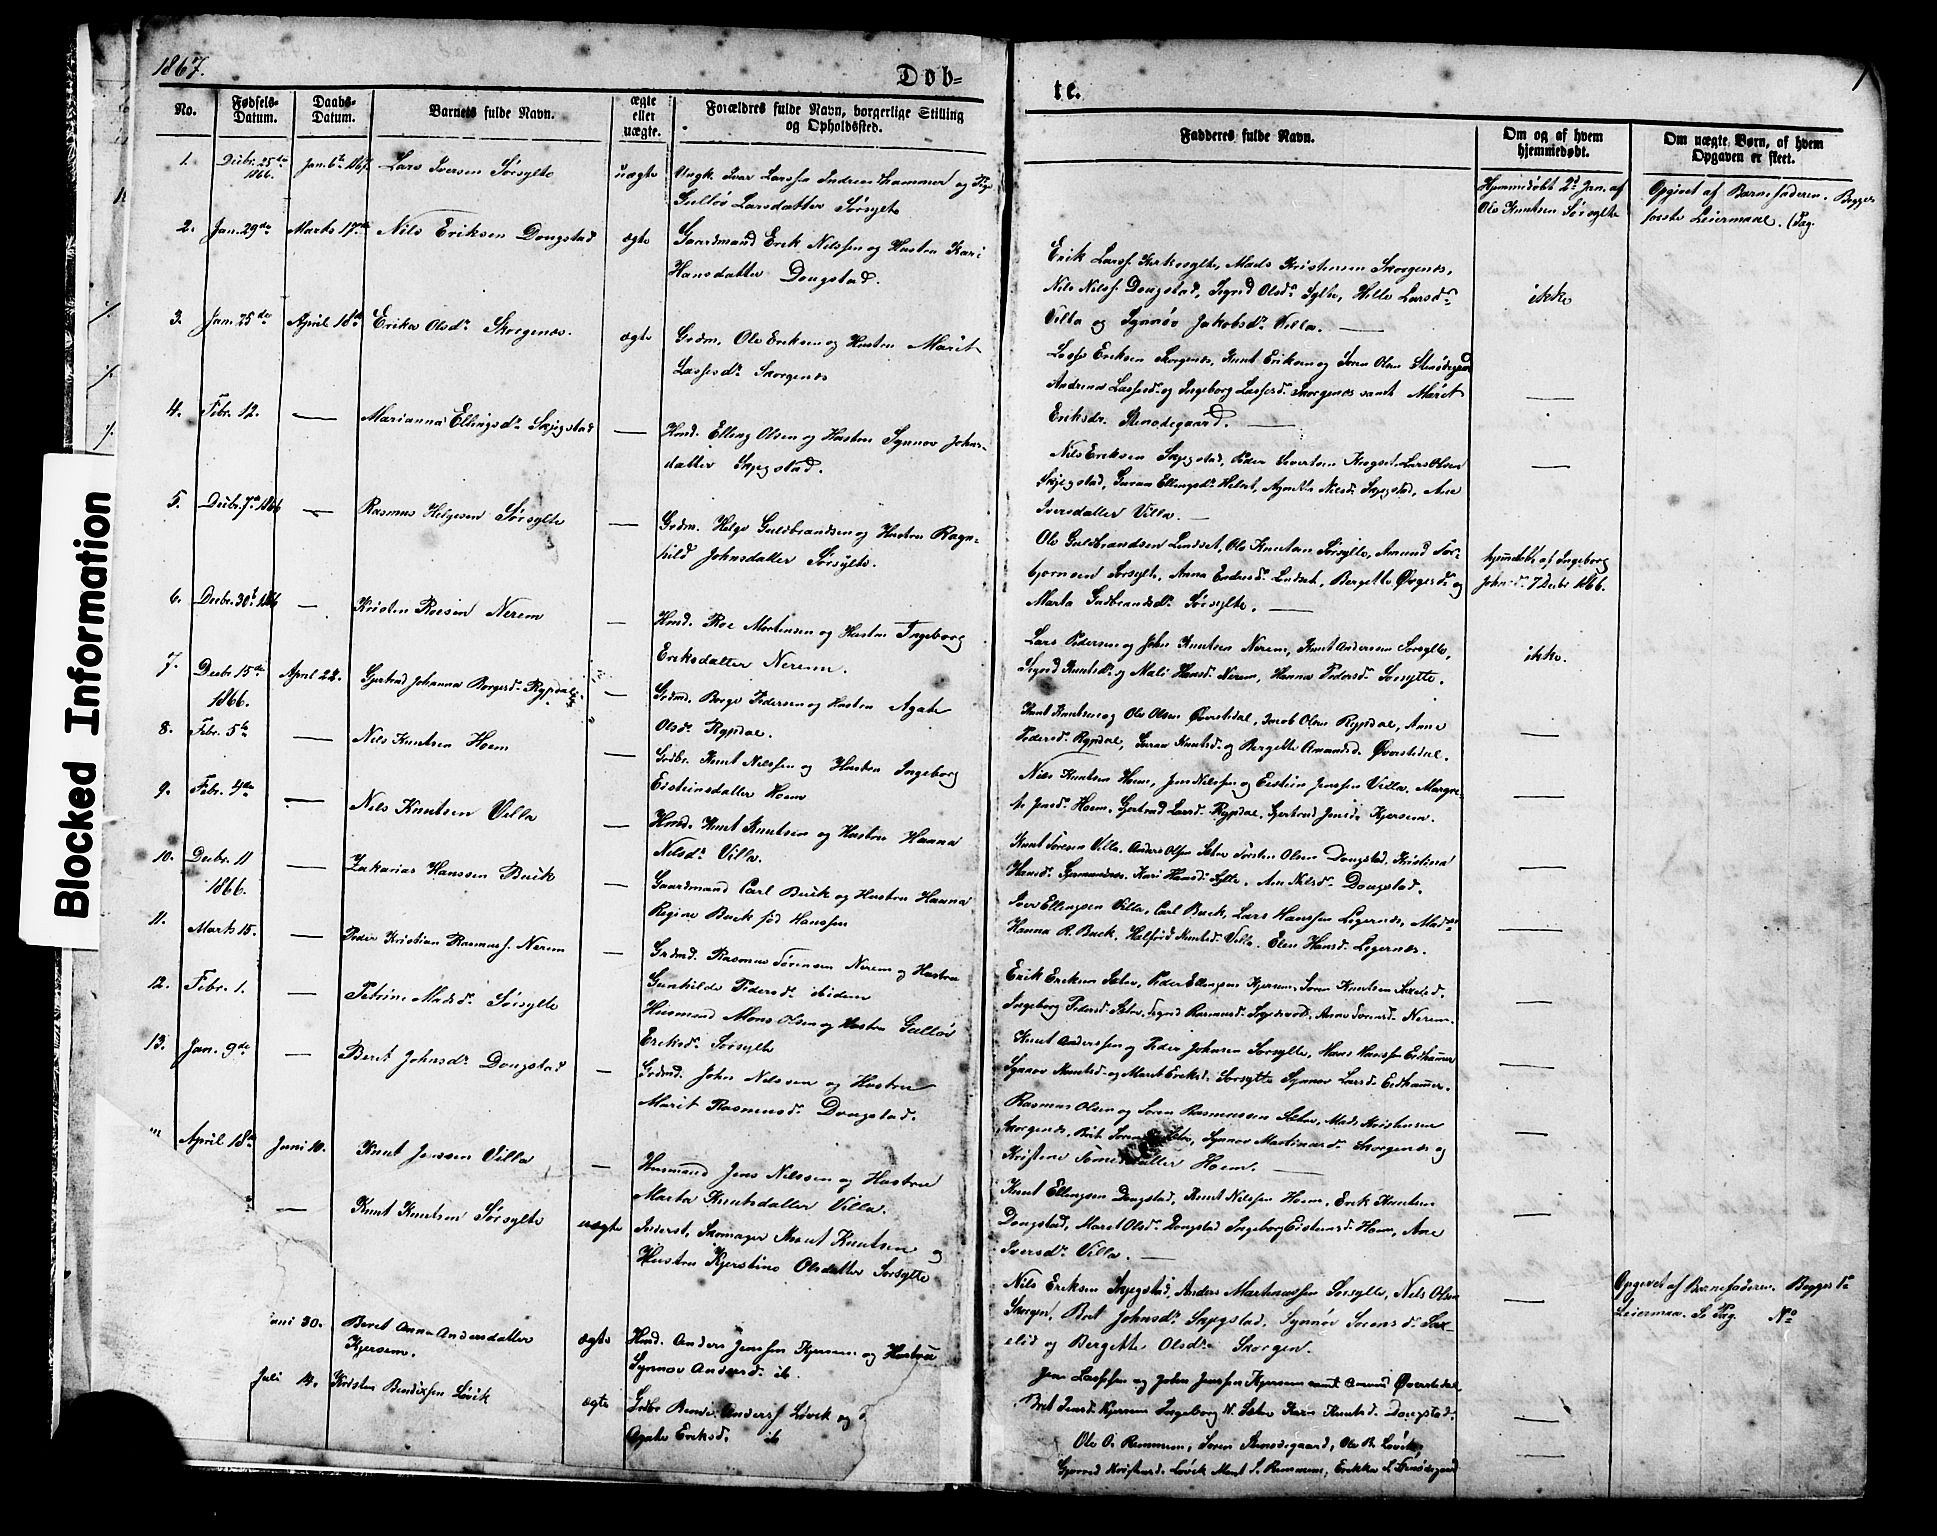 1867.
Døb=
te.
1
No.
Fødsels-
Datum.
Daabs-
Datum.
Barnets fulde Navn.
ægte
eller
uægte.
Forældres fulde Navn, borgerlige Stilling
og Opholdssted.
Fadderes fulde Navn.
Om og af hvem
hjemmedøbt.
Om uægte Børn, af hvem
Opgaven er skeet.
Blocked Information
1.
Decbr. 25de
1866.
Jan. 6te 1867
Lars Iversen Sørsylte
uægte
Ungk. Ivar Larssen Indre Hammer og Pige
Gulløv Larsdatter Sørsylte
Hjemmedøbt 2d Jan. af
Ole Knutsen Sørsylte
Opgivet af Barnefaderen. Begges
første Leiermaal.
2.
Jan. 29de
Marts 17de
Nils Eriksen Dougstad
ægte
Gaardmand Erik Nilssen og Hustru Kari
Hansdatter Dougstad.
Erik Larss. Kirkesylte, Mads Kristensen Skorgenes,
Nils Nilss. Dougstad, Sigrid Olsdr. Sylte, Hille Larsdr.
Villa og Synnøv Jakobsdr. Villa.
ikke
3.
Jan. 25de
April 18de
Erika Olsdr. Skorgenes.
ægte
Grdm. Ole Eriksen og Hustru Marit
Lassesdr. Skorgenes
Lasse Eriksen Skorgenes, Knut Eriksen og Søren Olsen Stenødegaard
Andrina Lassesd. og Ingeborg Lassesd. Skorgenes samt Marit
Eriksdr. Stenødegaard.
4.
Febr. 12.
Marianna Ellingsdr. Skjegstad
Hmd. Elling Olsen og Hustru Synnøv Johns-
datter Skjegstad.
Nils Eriksen Skjegstad, Peder Sivertsen Kongset, Lars Olsen
Skjegstad, Guruna Ellingsdr. Helset, Agnethe Nilsdr. Skjegstad, Ane
Iversdatter Villa.
5.
Decbr. 7de 1866
Rasmus Helgesen Sørsylte
Grdm. Helge Guldbrandsen og Hustru Ragn-
hild Johnsdatter Sørsylte.
Ole Guldbrandsen Lindset, Ole Knutsen Sørsylte, Amund Tor-
bjørnsen Sørsylte, Anna Endresd. Lindset, Bergette Ørgesdr. og
Marta Gudbrandsdr. Sørsylte.
hjemmedøbt af Ingeborg
Johnsd. 7 Decbr 1866.
6.
Decbr. 30te 1866
Kristen Roesen Nerem
Hmd. Roe Mortensen og Hustru Ingeborg
Eriksdatter Nerem.
Lars Pedersen og John Knutsen Nerem, Knut Andersen Sørsylte,
Sigrid Knutsdr. og Mali Hansd. Nerem, Hanna Pedersd. Sørsylte.
ikke.
7.
Decbr. 15de
1866.
April 22.
Gjertrud Johanna Børgesd. Rypdal.
Grdmd. Børge Pedersen og Hustru Agate
Olsd. Rypdal.
Knut Knutsen og Ole Olsen Øverstedal, Jacob Olsen Rypdal, Anne
Pedersd. Rypdal, Guruna Knutsd. og Bergette Amundsd. Øverstedal.
8.
Febr. 5te
Nils Knutsen Hoem
Grdbr. Knut Nilssen og Hustru Ingeborg
Eisteinsdatter Hoem
Nils Knutsen Hoem, Jens Nilssen og Eistein Jenssen Villa, Margre-
te Jensd. Hoem, Gjertrud Larsd. Rypdal, Gjertrud Jensd. Kjersem.
9.
Febr. 4de
Nils Knutsen Villa
Hmd. Knut Knutsen og Hustru Hanna
Nilsdr. Villa.
Knut Sørensen Villa, Anders Olsen Sæter, Torsten Olsen Dougstad, Kristina
Hansd. Gjermundnes, Kari Hansd. Sylte, Ane Nilsd. Dougstad.
10.
Decbr. 11
1866.
Zakarias Hanssen Buck
Gaardmand Carl Buck og Hustru Hanna
Regine Buck fød Hanssen
Iver Ellingsen Villa, Carl Buck, Lars Hanssen Legernes, Mad.
Hanna R. Buck, Halfrid Knutsd. Villa, Elen Hansd. Legernes.
11.
Marts 15.
Peder Kristian Rasmuss. Nerem
Grdmd. Rasmus Sørensen Nerem og Hustru
Gunhilde Pedersd. ibidem
Erik Eriksen Sæter, Peder Ellingsen Kjersem, Søren Knutsen Saxelid,
Ingeborg Pedersd. Sæter, Sigrid Rasmusd. Sogndsvold, Anne Sørensd. Nerem.
12.
Febr. 1.
Petrine Madsdr. Sørsylte
Husmand Mons Olsen og Hustru Gulløv
Eriksd. Sørsylte
Knut Anderssen og Peder Johnsen Sørsylte, Hans Hanssen Eidhammer
Synnøv Knutsd. og Marit Eriksd. Sørsylte, Synnøv Larsd. Eidhammer.
13.
Jan. 9de
Beret Johnsdr. Dougstad
Grdmd. John Nilssen og Hustru
Marit Rasmusd. Dougstad.
Rasmus Olsen og Søren Rasmussen Sæter, Mads Kristensen
Skorgenes, Brit Sørensd. Sæter, Synnøv Martinusd. Skorgenes og
Kristine Tomasdatter Hoem.
April 18de
Juni 10.
Knut Jenssen Villa
Husmand Jens Nilssen og Hustru
Marta Knutsdatter Villa.
Knut Ellingsen Dougstad, Knut Nilssen Hoem, Erik Knutsen
Dougstad, Maret Olsdr. Dougstad, Ingeborg Eisteinsd. Hoem, Ane
Iversdr. Villa.
Knut Knutsen Sørsylte
uægte
Inderst, Skomager Knut Knutsen og
Hustru Kjerstine Olsdatter Sørsylte
Nils Eriksen Skjegstad, Anders Martinussen Sørsylte, Nils Olsen
Skorgen, Bret Johnsdr. Skjegstad, Synnøv Sørensdr. Sax-
elid og Bergette Olsdr. Skorgen.
Opgivet af Barnefaderen. Begges 1ste
Leiermaal. S. Pag. No
uni 30.
Beret Anna Andersdatter
Kjersem.
ægte
Hmd. Anders Jenssen Kjersem og Hustru
Synnøv Andersd. ib.
Jens Lassesen og John Jenssen Kjersem samt Amund Øverstedal
Bret Jensd. Kjersem, Ingeborg N. Sæter, Karen Knutsd. Dougstad.
Juli 14.
Kristen Bendixsen Løvik
ægte
Grdbr. Bendix Anderss. Løvik og
Agate Eriksd. ib
Ole O. Remmem, Søren Stenødegaard, Ole B. Løvik,
Gjørred Kristensd. Løvik, Marit S. Remmem, Erikka S. Stenødegaard